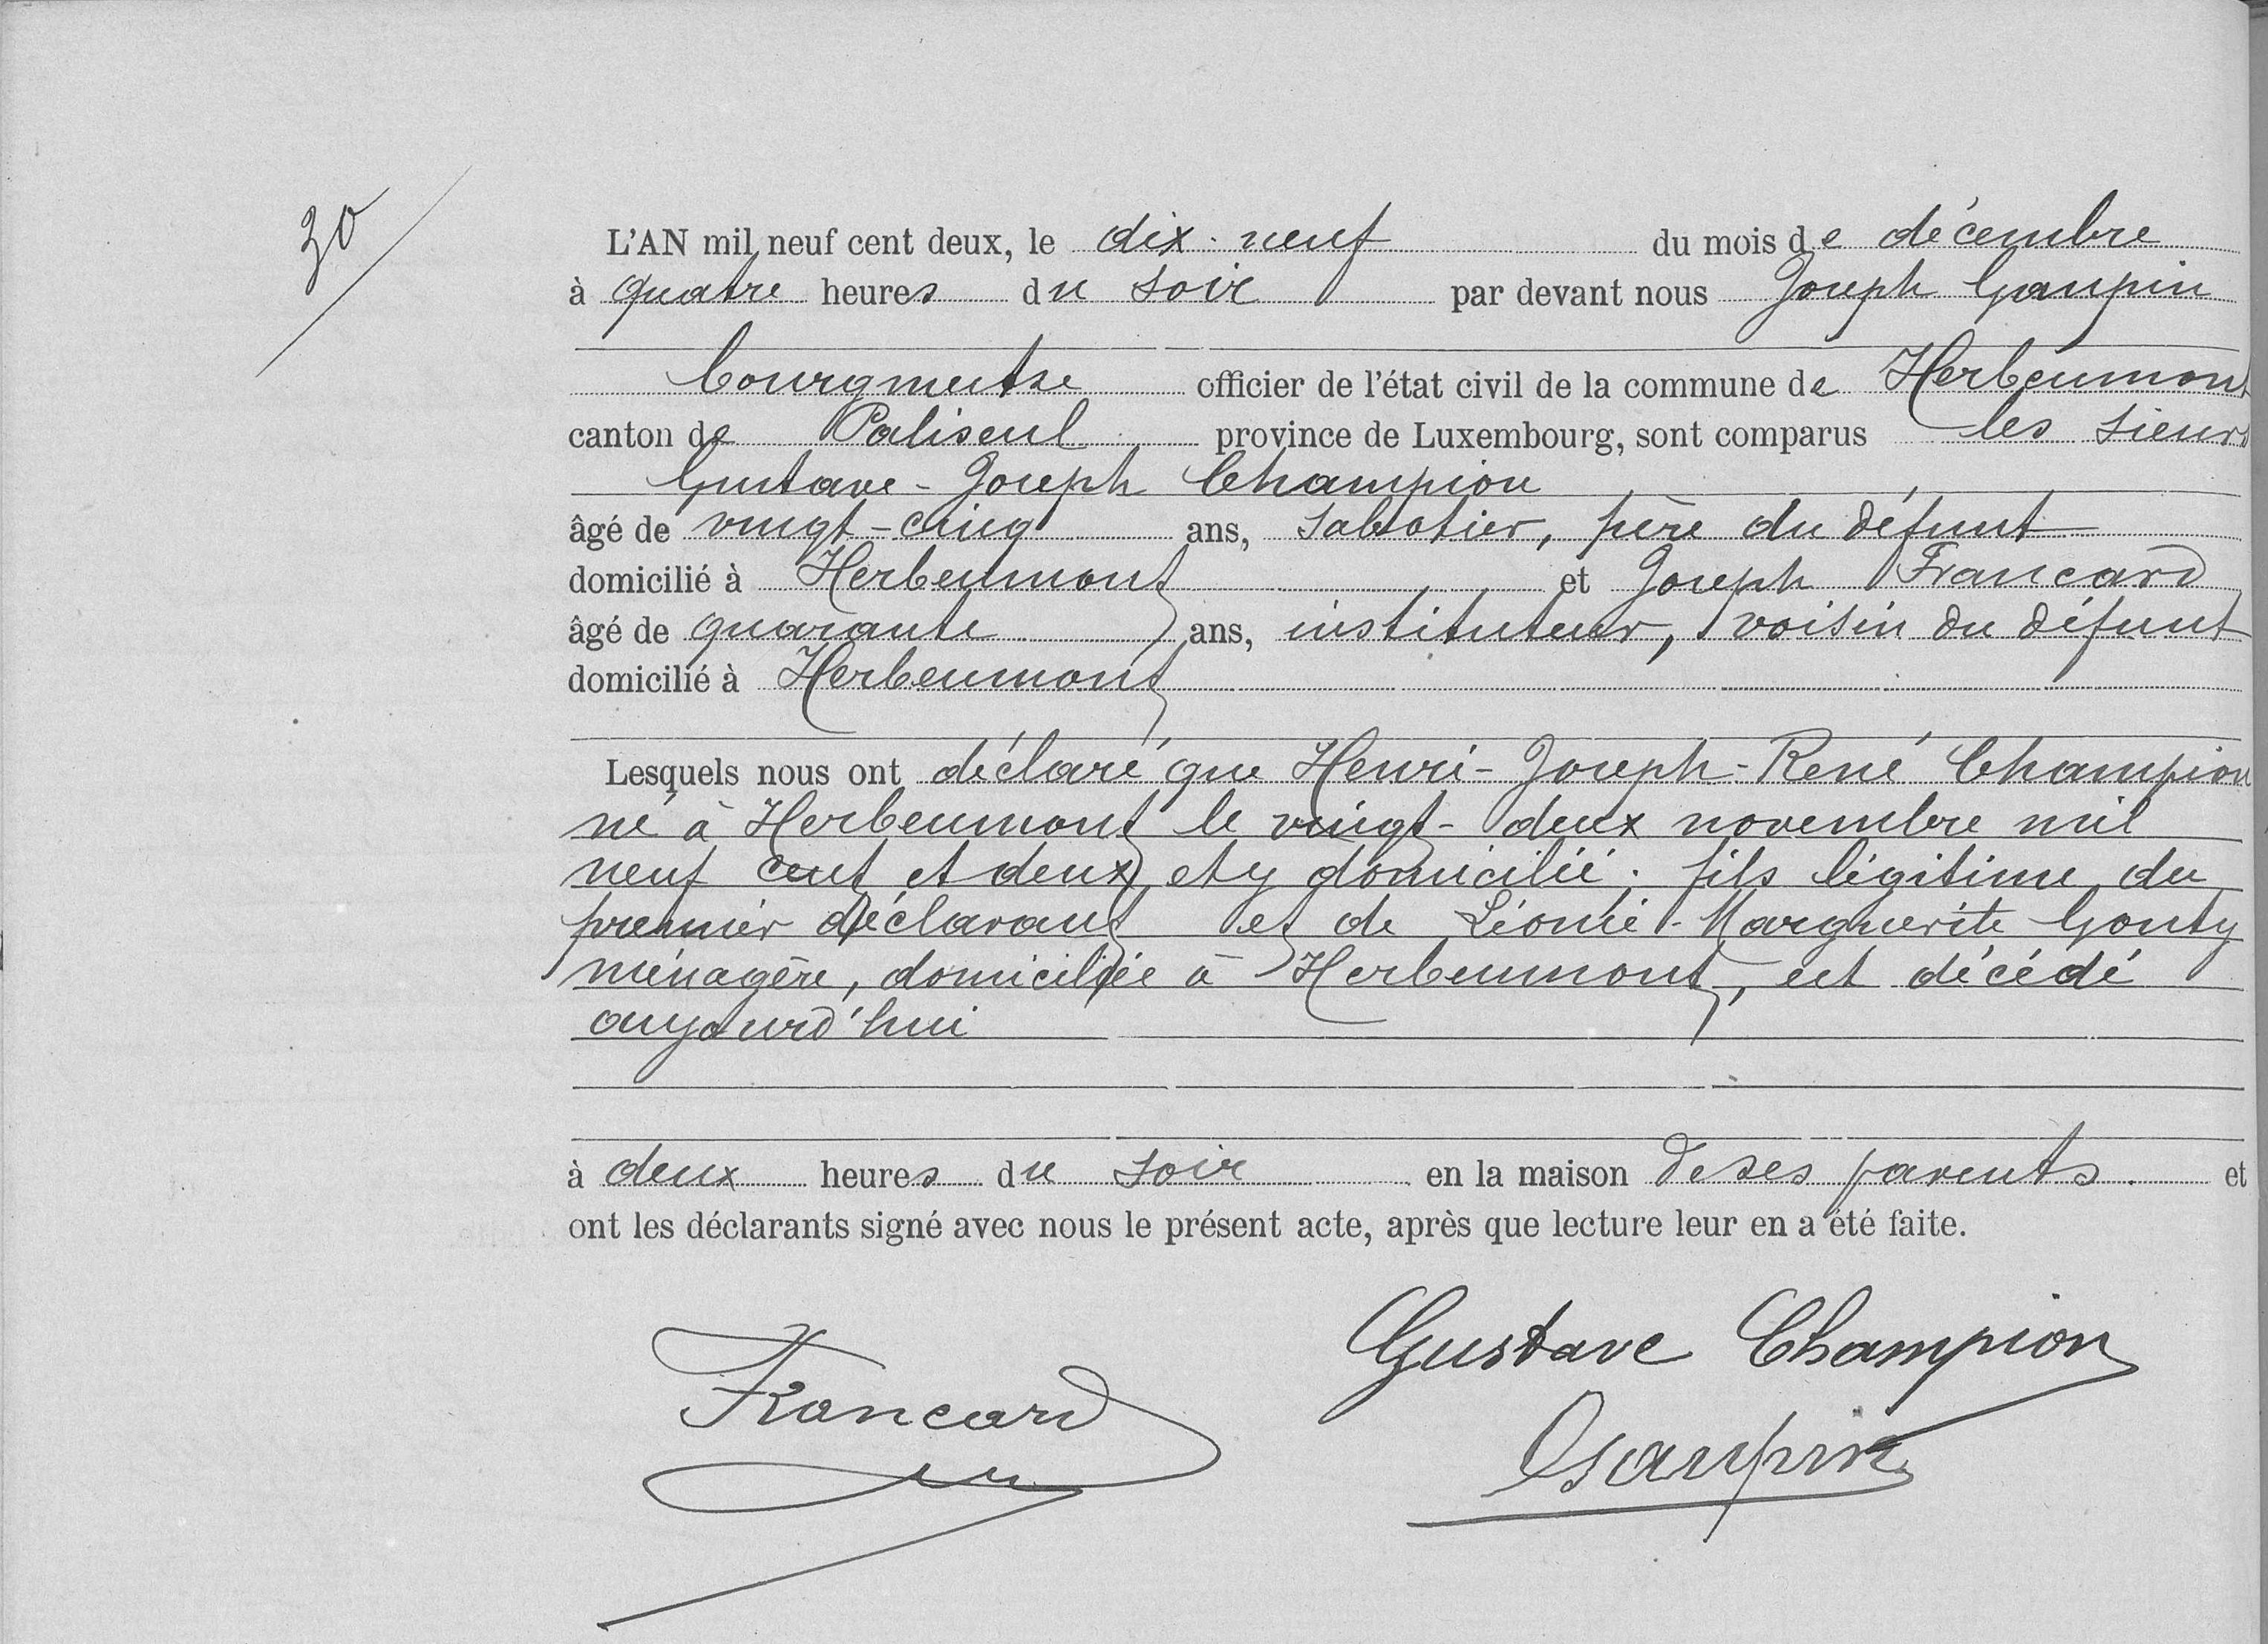 30
L'AN mil neuf cent deux, le dix-neuf du mois de décembre
à quatre heures du soir par devant nous Joseph Gaupin
bourgmestre officier de l'état civil de la commune de Herbeumont
canton de Paliseul province de Luxembourg, sont comparus les sieurs
Gustave-Joseph Champion
âgé de vingt-cinq ans, sabotier, père du défunt
domicilié à Herbeumont et Joseph Francard
âgé de quarante ans, instituteur, voisin du défunt
domicilié à Herbeumont
Lesquels nous ont déclaré que Henri-Joseph-René Champion
né à Herbeumont le vingt-deux novembre mil
neuf cent et deux, et y domicilié; fils légitime du
premier déclarant et de Léonie-Marguerite Gonty
ménagère, domiciliée à Herbeumont, est décédé
aujourd'hui
à deux heures du soir en la maison de ses parents. et
ont les déclarants signé avec nous le présent acte, après que lecture leur en a été faite.
Gustave Champion
Francard
Gaupin